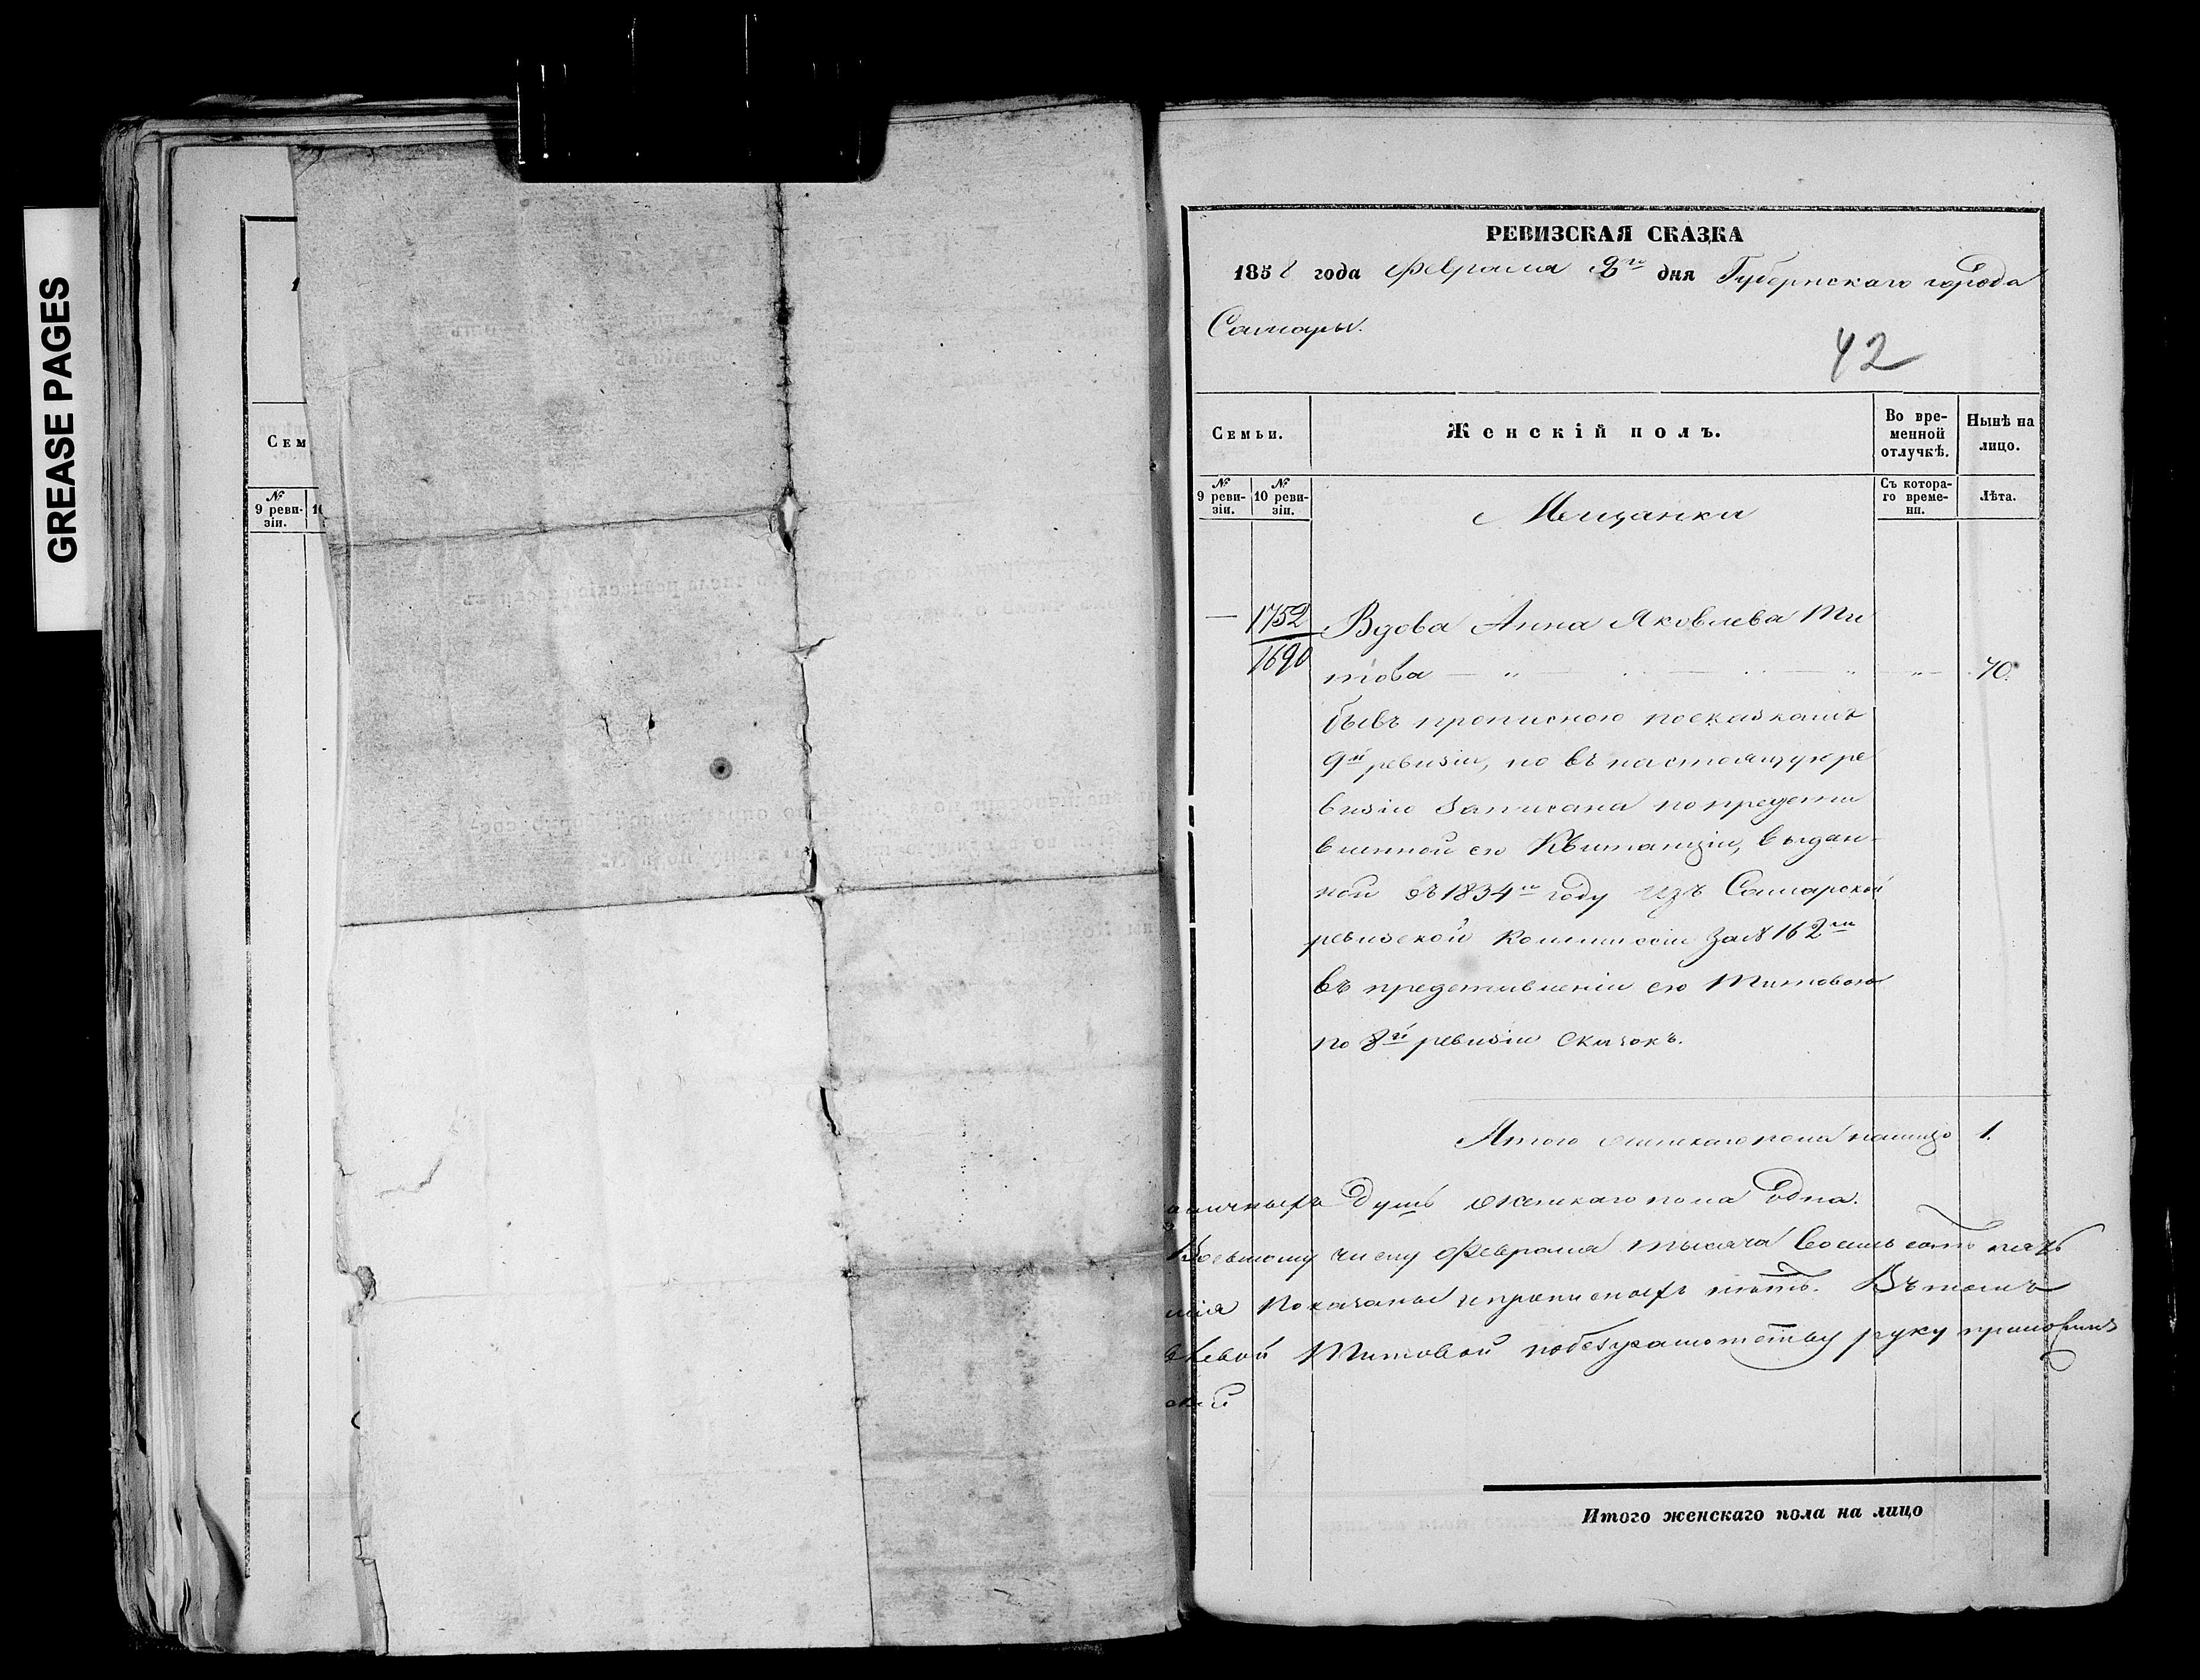 GREASE PAGES
Сем
№
9 реви-
зіи.
РЕВИЗСКАЯ СКАЗКА
1858 года Февраля 8го дня Губернскаго города
Самары.
42
Семьи.
Женскій полъ.
Во вре-
менной
отлучкѣ.
Нынѣ на
лицо.
№
9 реви-
зіи.
№
10 реви-
зіи.
Мещанки
Съ котора-
го време-
ни.
Лѣта.
— 1752 Вдова Анна Яковлева Ти
1690 това — „ — „ — „ — 70.
бывъ прописною посказкамъ
9й ревизіи, но въ настоящую ре
визію записана по предста
вленной ею Квитанціи, выдан-
ной въ 1834м году изъ Самарской
ревизской Коммиссіи за № 162м
въ представленіи ею Титовою
по 8й ревизіи сказокъ.
Итого женскаго пола налицо 1.
аличныхъ душъ женскаго пола одна.
Восьмому числу Февраля тысяча восемь сотъ пять
показаны и прописныхъ нѣтъ. Въ томъ
Титовой побезграмотству руку приложилъ
Итого женскаго пола на лицо